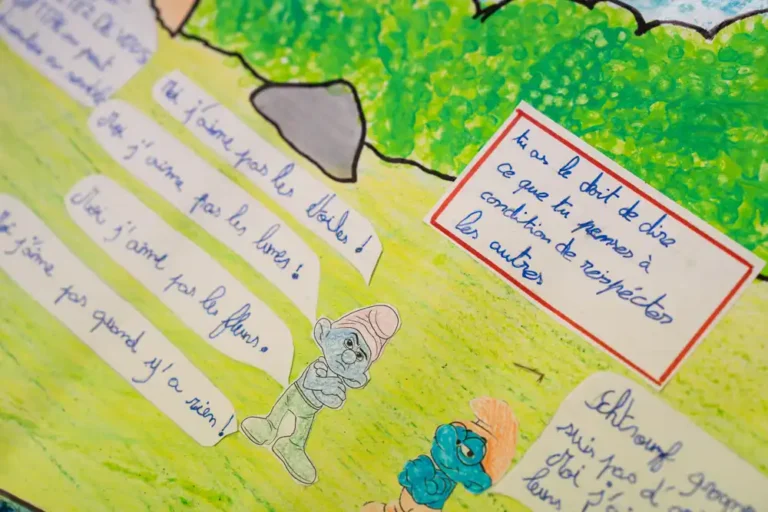 DE VOUS
on peut
Moi j'aime pas les étoiles !
Moi j'aime pas les livres !
Moi j'aime pas les fleurs.
Moi j'aime pas quand y'a rien !
tu as le doit de dire
ce que tu penses à
condition de respécter
les autres
suis pas d'a
Moi j'a
leurs p